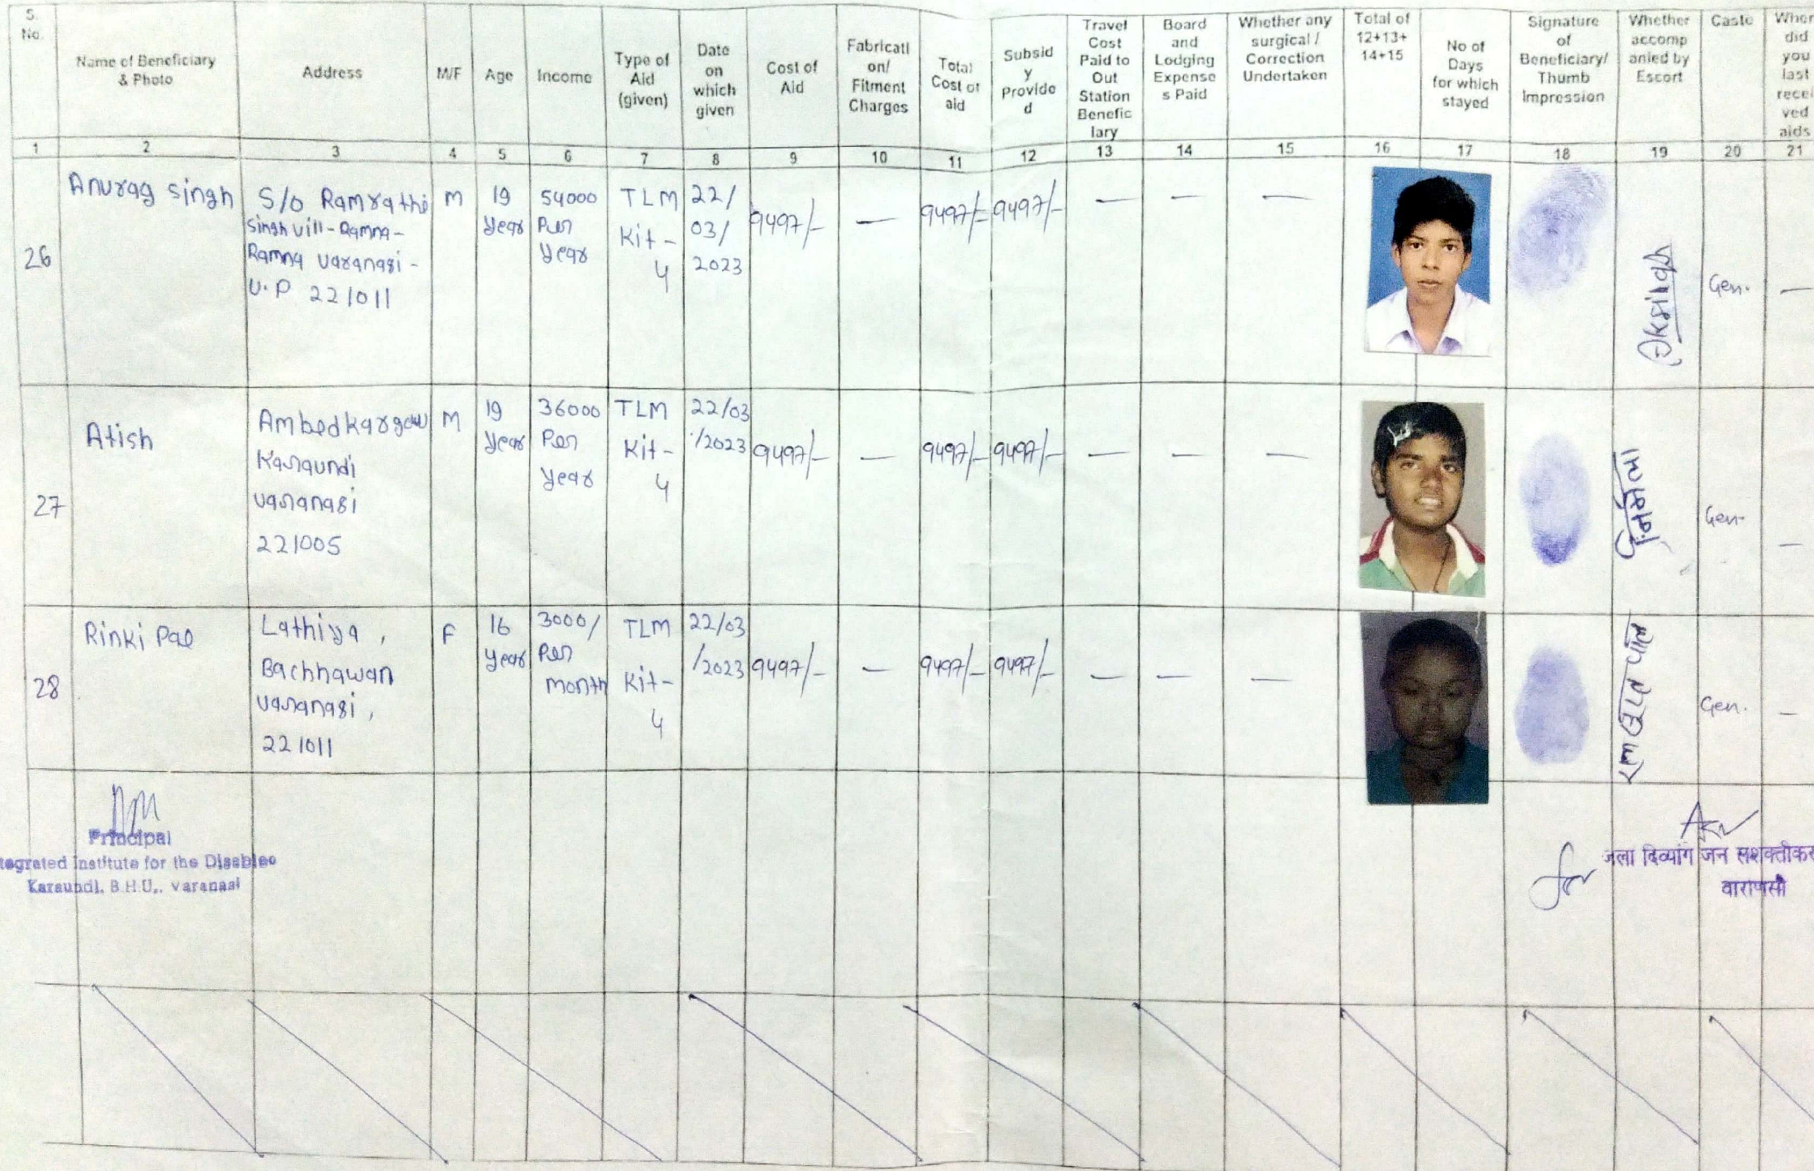 S. No.
Name of Beneficiary & Photo
Address
M/F
Age
Income
Type of Aid (given)
Date on which given
Cost of Aid
Fabricati on/ Fitment Charges
Total Cost of aid
Subsid y Provide d
Travel Cost Paid to Out Station Benefic iary
Board and Lodging Expense s Paid
Whether any surgical / Correction Undertaken
Total of 12+13+ 14+15
No of Days for which stayed
Signature of Beneficiary/ Thumb Impression
Whether accomp anied by Escort
Caste
When did you last recei ved aids
1 2 3 4 5 6 7 8 9 10 11 12 13 14 15 16 17 18 19 20 21
26
Anurag singh
S/o Ramrathi
singh vill-Ramna-
Ramna varanasi-
U.P 221011
M
19
year
54000
Per
year
TLM
Kit-
4
22/
03/
2023
9497/-
—
9497/-
9497/-
—
—
—
Gen.
—
27
Atish
Kanaundi
varanasi
221005
M
19
year
36000
Per
year
TLM
Kit-
4
22/03
/2023
9497/-
—
9497/-
9497/-
—
—
—
निर्मला
Gen-
—
28
Rinki Pal
Lathiya,
Bachhawan
varanasi,
221011
F
16
year
3000/
Per
month
TLM
Kit-
4
22/03
/2023
9497/-
—
9497/-
9497/-
—
—
—
पाल
Gen.
—
Principal
tegrated Institute for the Disabled
Karaundi, B.H.U., Varanasi
जला दिव्यांग जन सशक्तीकर
वाराणसी